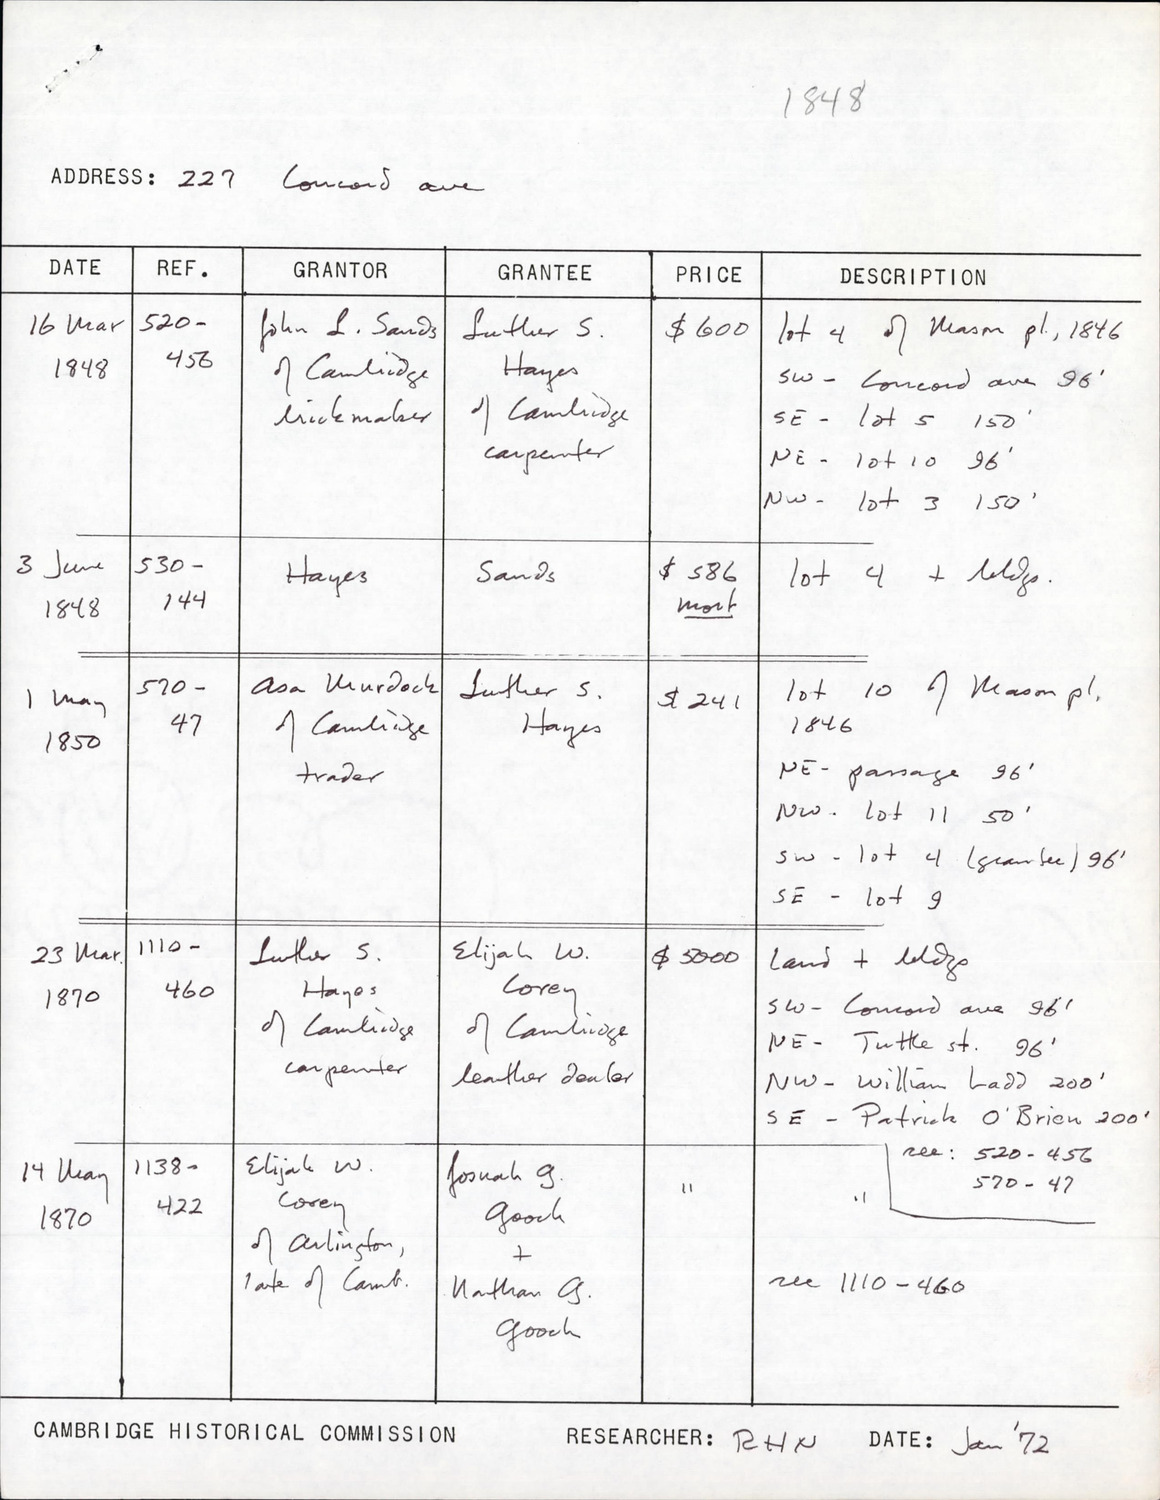 1848
ADDRESS: 227 Concord ave
DATE REF. GRANTOR GRANTEE PRICE DESCRIPTION
16 Mar 1848
520-456
John L. Sands
of Cambridge
brickmaker
Luther S.
Hayes
of Cambridge
carpenter
$600
lot 4 of Mason pl., 1846
SW - Concord ave 96'
SE - lot 5 150'
NE - lot 10 96'
NW - lot 3 150'
3 June
1848
530-
144
Hayes
Sands
$586
mort
lot 4 + bldgs.
1 May
1850
570-
47
Asa Murdock
of Cambridge
trader
Luther S.
Hayes
$241
lot 10 of Mason pl.
1846
NE - passage 96'
NW - lot 11 50'
SW - lot 4 (grantee) 96'
SE - lot 9
23 Mar.
1870
1110-
460
Luther S.
Hayes
of Cambridge
carpenter
Elijah W.
Corey
of Cambridge
leather dealer
$5000
Land + bldgs
SW - Concord ave 96'
NE - Tuttle st. 96'
NW - William Ladd 200'
SE - Patrick O'Brien 200'
see: 520-456
570-47
14 May
1870
1138-
422
Elijah W.
Corey
of Arlington,
late of Camb.
Josiah G.
Gooch
+
Nathan G.
Gooch
"
"
see 1110-460
CAMBRIDGE HISTORICAL COMMISSION RESEARCHER: RHN DATE: Jan '72